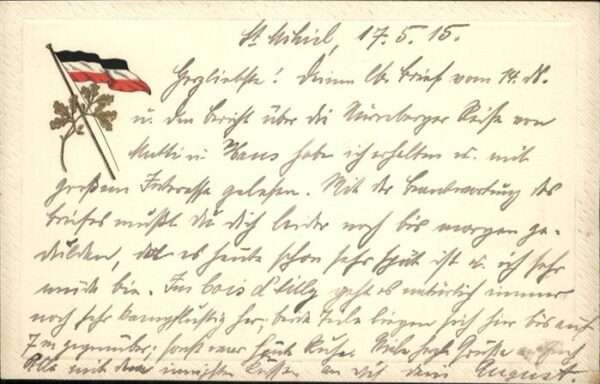 St Mihiel, 17.5.15.
Herzliebste! Deinen lb. Brief vom 14. ds.
u. den Bericht über die Nürnberger Reise von
Mutti u. Hans habe ich erhalten u. mit
großem Interesse gelesen. Mit der Beantwortung des
Briefes mußt du dich leider noch bis morgen ge-
dulden, da es heute schon sehr spät ist u. ich sehr
müde bin. Im bois d'Ailly geht es natürlich immer
noch sehr kampflustig her, beide Teile liegen sich hier bis auf
7 m gegenüber; sonst war heute Ruhe. Viele herzl. Grüße an Euch
Alle mit den innigsten Küssen an dich dein August.